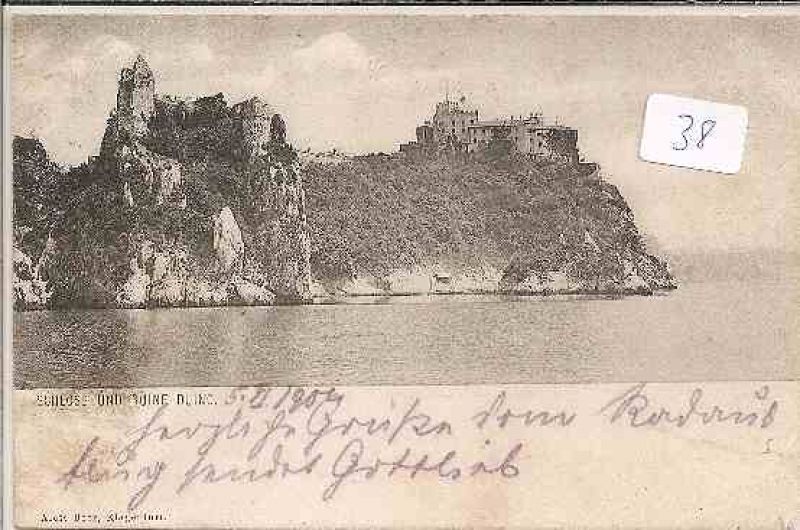 38
SCHLOSS UND RUINE DUINO. 5. II 1904
herzliche Grüße vom Radaus
flug sendet Gottlieb